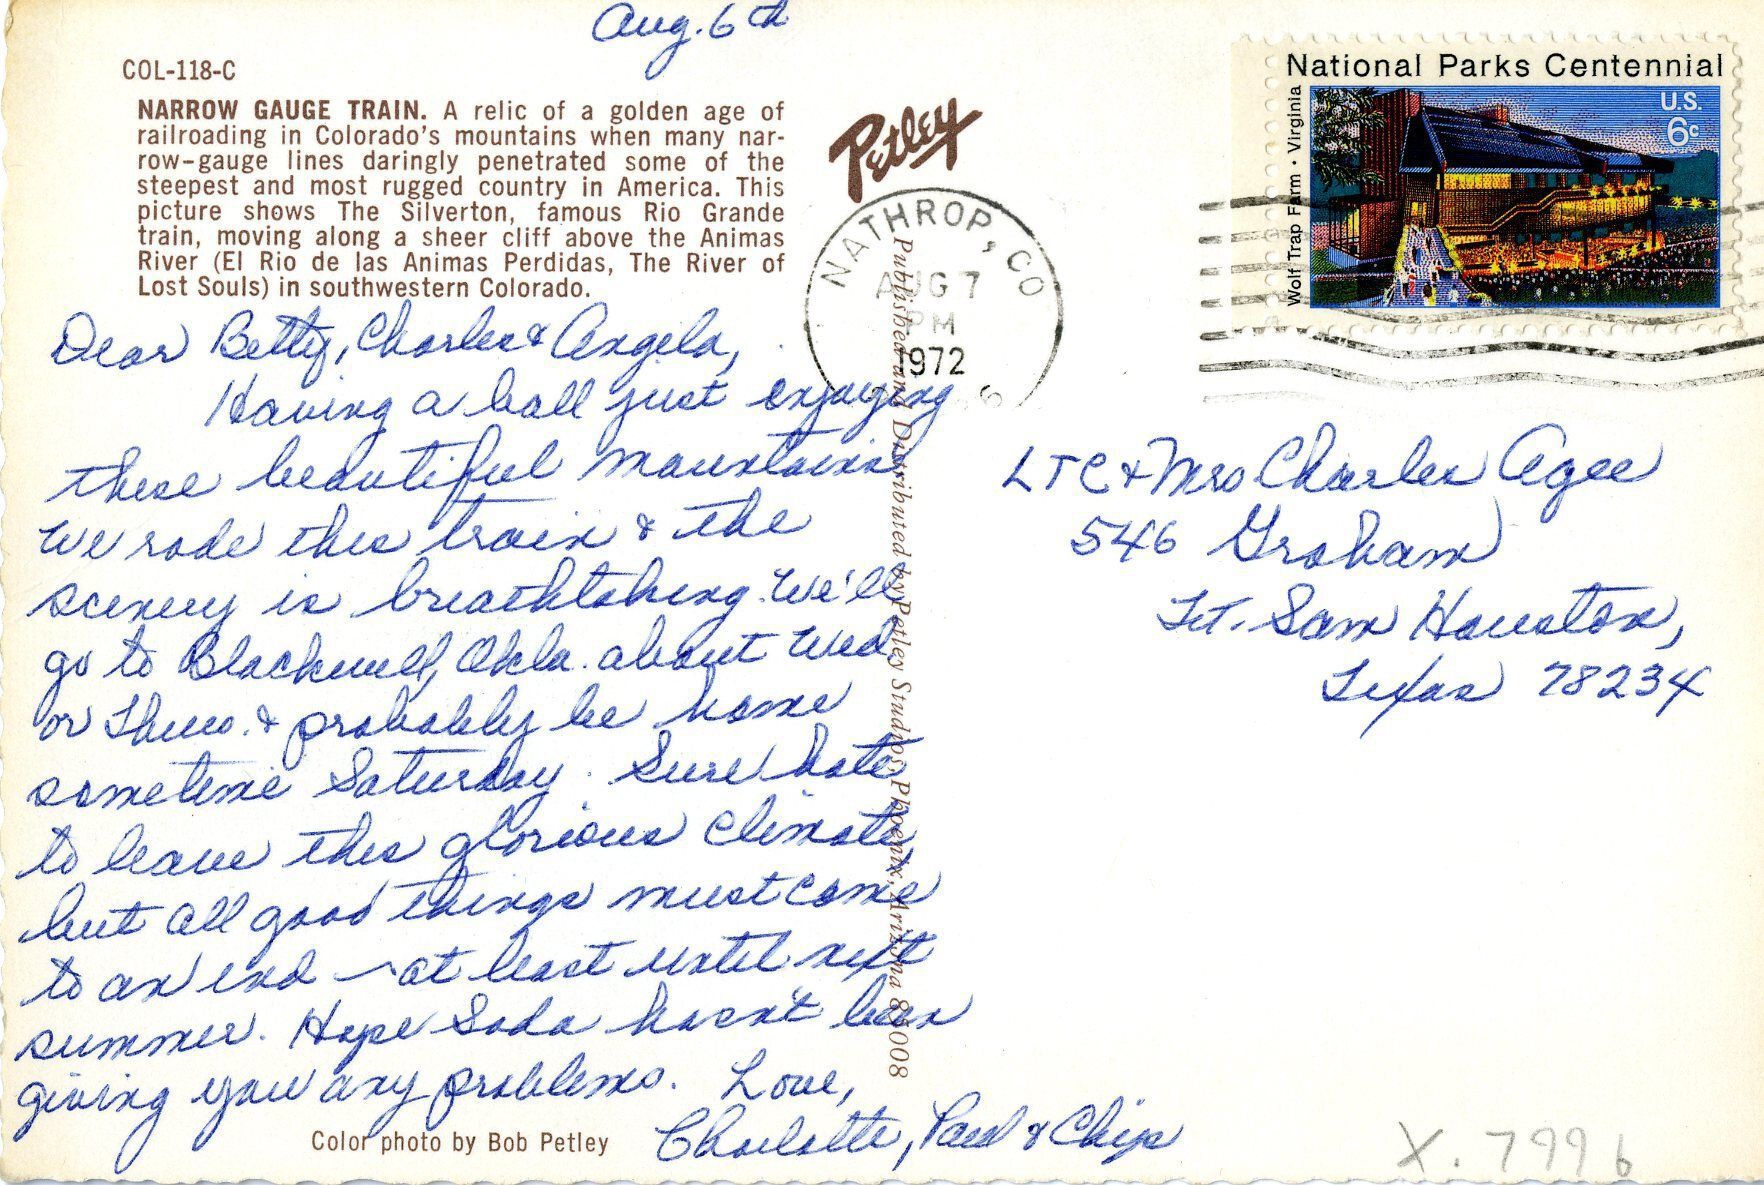 Aug. 6th
COL-118-C
NARROW GAUGE TRAIN. A relic of a golden age of
railroading in Colorado's mountains when many nar-
row-gauge lines daringly penetrated some of the
steepest and most rugged country in America. This
picture shows The Silverton, famous Rio Grande
train, moving along a sheer cliff above the Animas
River (El Rio de las Animas Perdidas, The River of
Lost Souls) in southwestern Colorado.
Dear Betty, Charles & Angela,
Having a ball just enjoying
these beautiful mountains
We rode this train & the
scenery is breathtaking. We'll
go to Blackwell, Okla. about Wed.
or Thurs. & probably be home
sometime Saturday. Sure hate
to leave this glorious climate,
but all good things must come
to an end - at least until next
summer. Hope Soda hasn't been
giving you any problems. Love,
Charlotte, Paul & Chips
Color photo by Bob Petley
Petley
Published and Distributed by Petley Studios, Phoenix, Arizona 85008
NATHROP, CO
AUG 7
PM
1972
National Parks Centennial
U.S.
6c
Wolf Trap Farm · Virginia
LTC & Mrs Charles Agee
546 Graham
Ft. Sam Houston,
Texas 78234
X. 7996